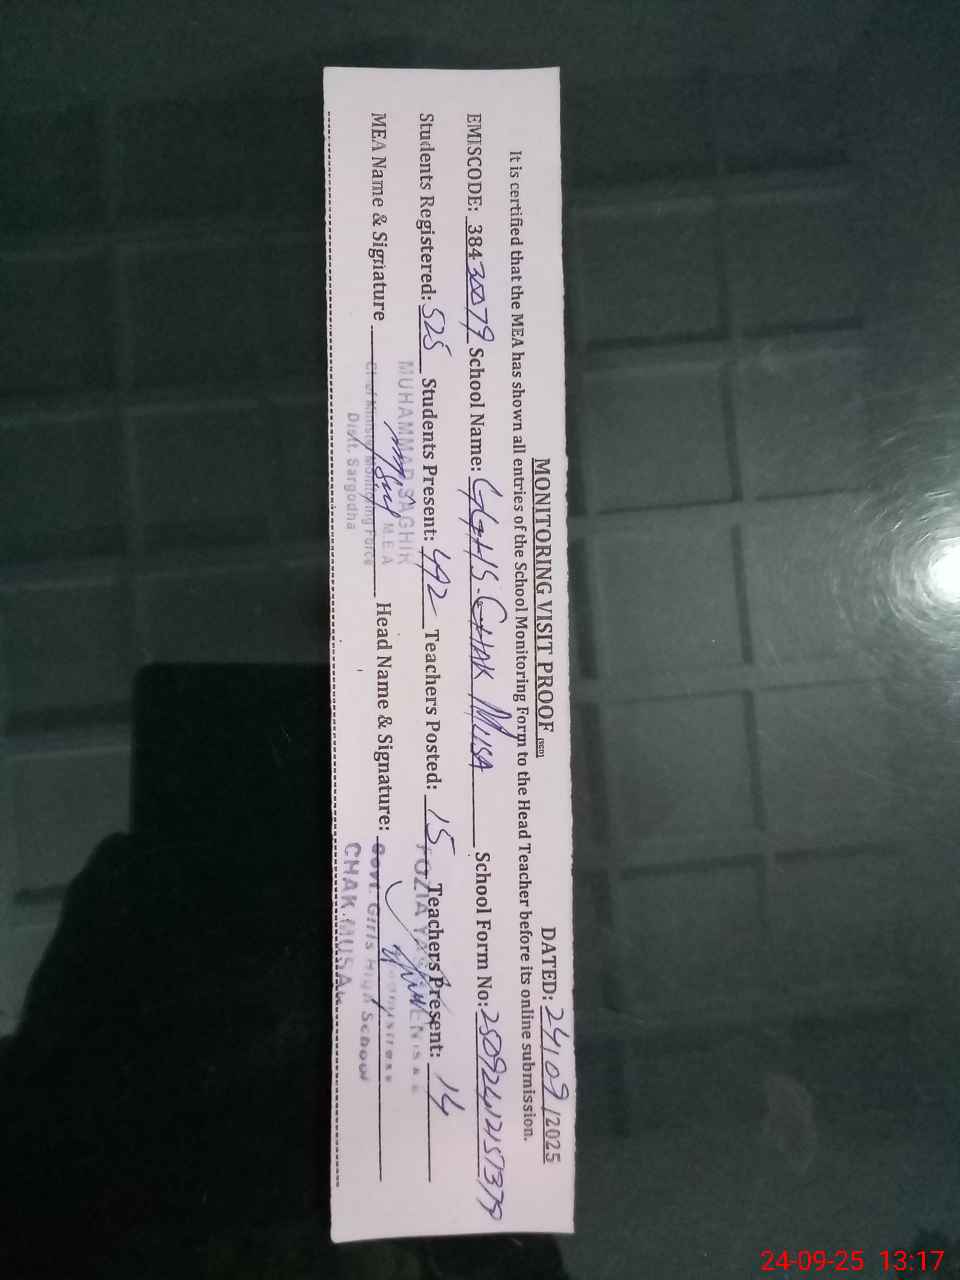 MONITORING VISIT PROOF (SED) DATED: 24/09/2025
It is certified that the MEA has shown all entries of the School Monitoring Form to the Head Teacher before its online submission.
EMISCODE: 38430079 School Name: GGHS CHAK MUSA School Form No:
Students Registered: 525 Students Present: 492 Teachers Posted: 15 Teachers Present: 14
MEA Name & Signature Head Name & Signature:
MUHAMMAD SAGHIR
M.E.A
Chief Minister Monitoring Force
Distt. Sargodha
FOZIA
Headmistress
Govt. Girls High School
CHAK MUSA
24-09-25 13:17